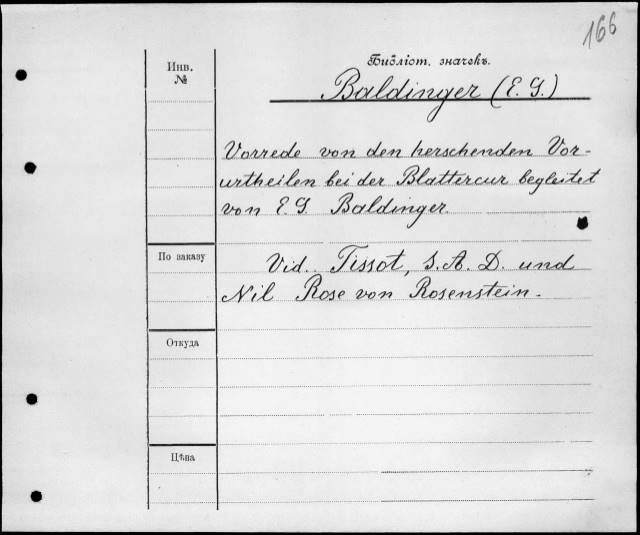 166
Инв.
№
Библіот. значекъ.
Baldinger (E. G.)
Vorrede von den herschenden Vor-
urtheilen bei der Blattercur begleitet
von E. G. Baldinger.
По заказу
Vid. Tissot, S. A. D. und
Nil Rose von Rosenstein.
Откуда
Цѣна